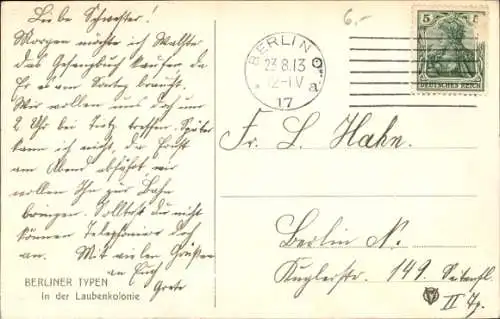 Liebe Schwester!
Morgen möchte ich Walter
das Gesangbuch kaufen da
Er es am Sontag braucht.
Wir wollen uns doch um
2 Uhr bei Tietz treffen. Später
kann ich nicht, da Ernst
am Abend abfährt wir
wollen Ihn zur Bahn
bringen. Solltest du nicht
können Telephoniere doch
an. Mit vielen Grüssen
an Euch
Grete
BERLINER TYPEN
In der Laubenkolonie
6.-
BERLIN
23.8.13
12-1V
* a
17
5
DEUTSCHES REICH
Fr. L. Hahn.
Berlin N.
Kuglerstr. 149. Seitenfl.
II Tr.